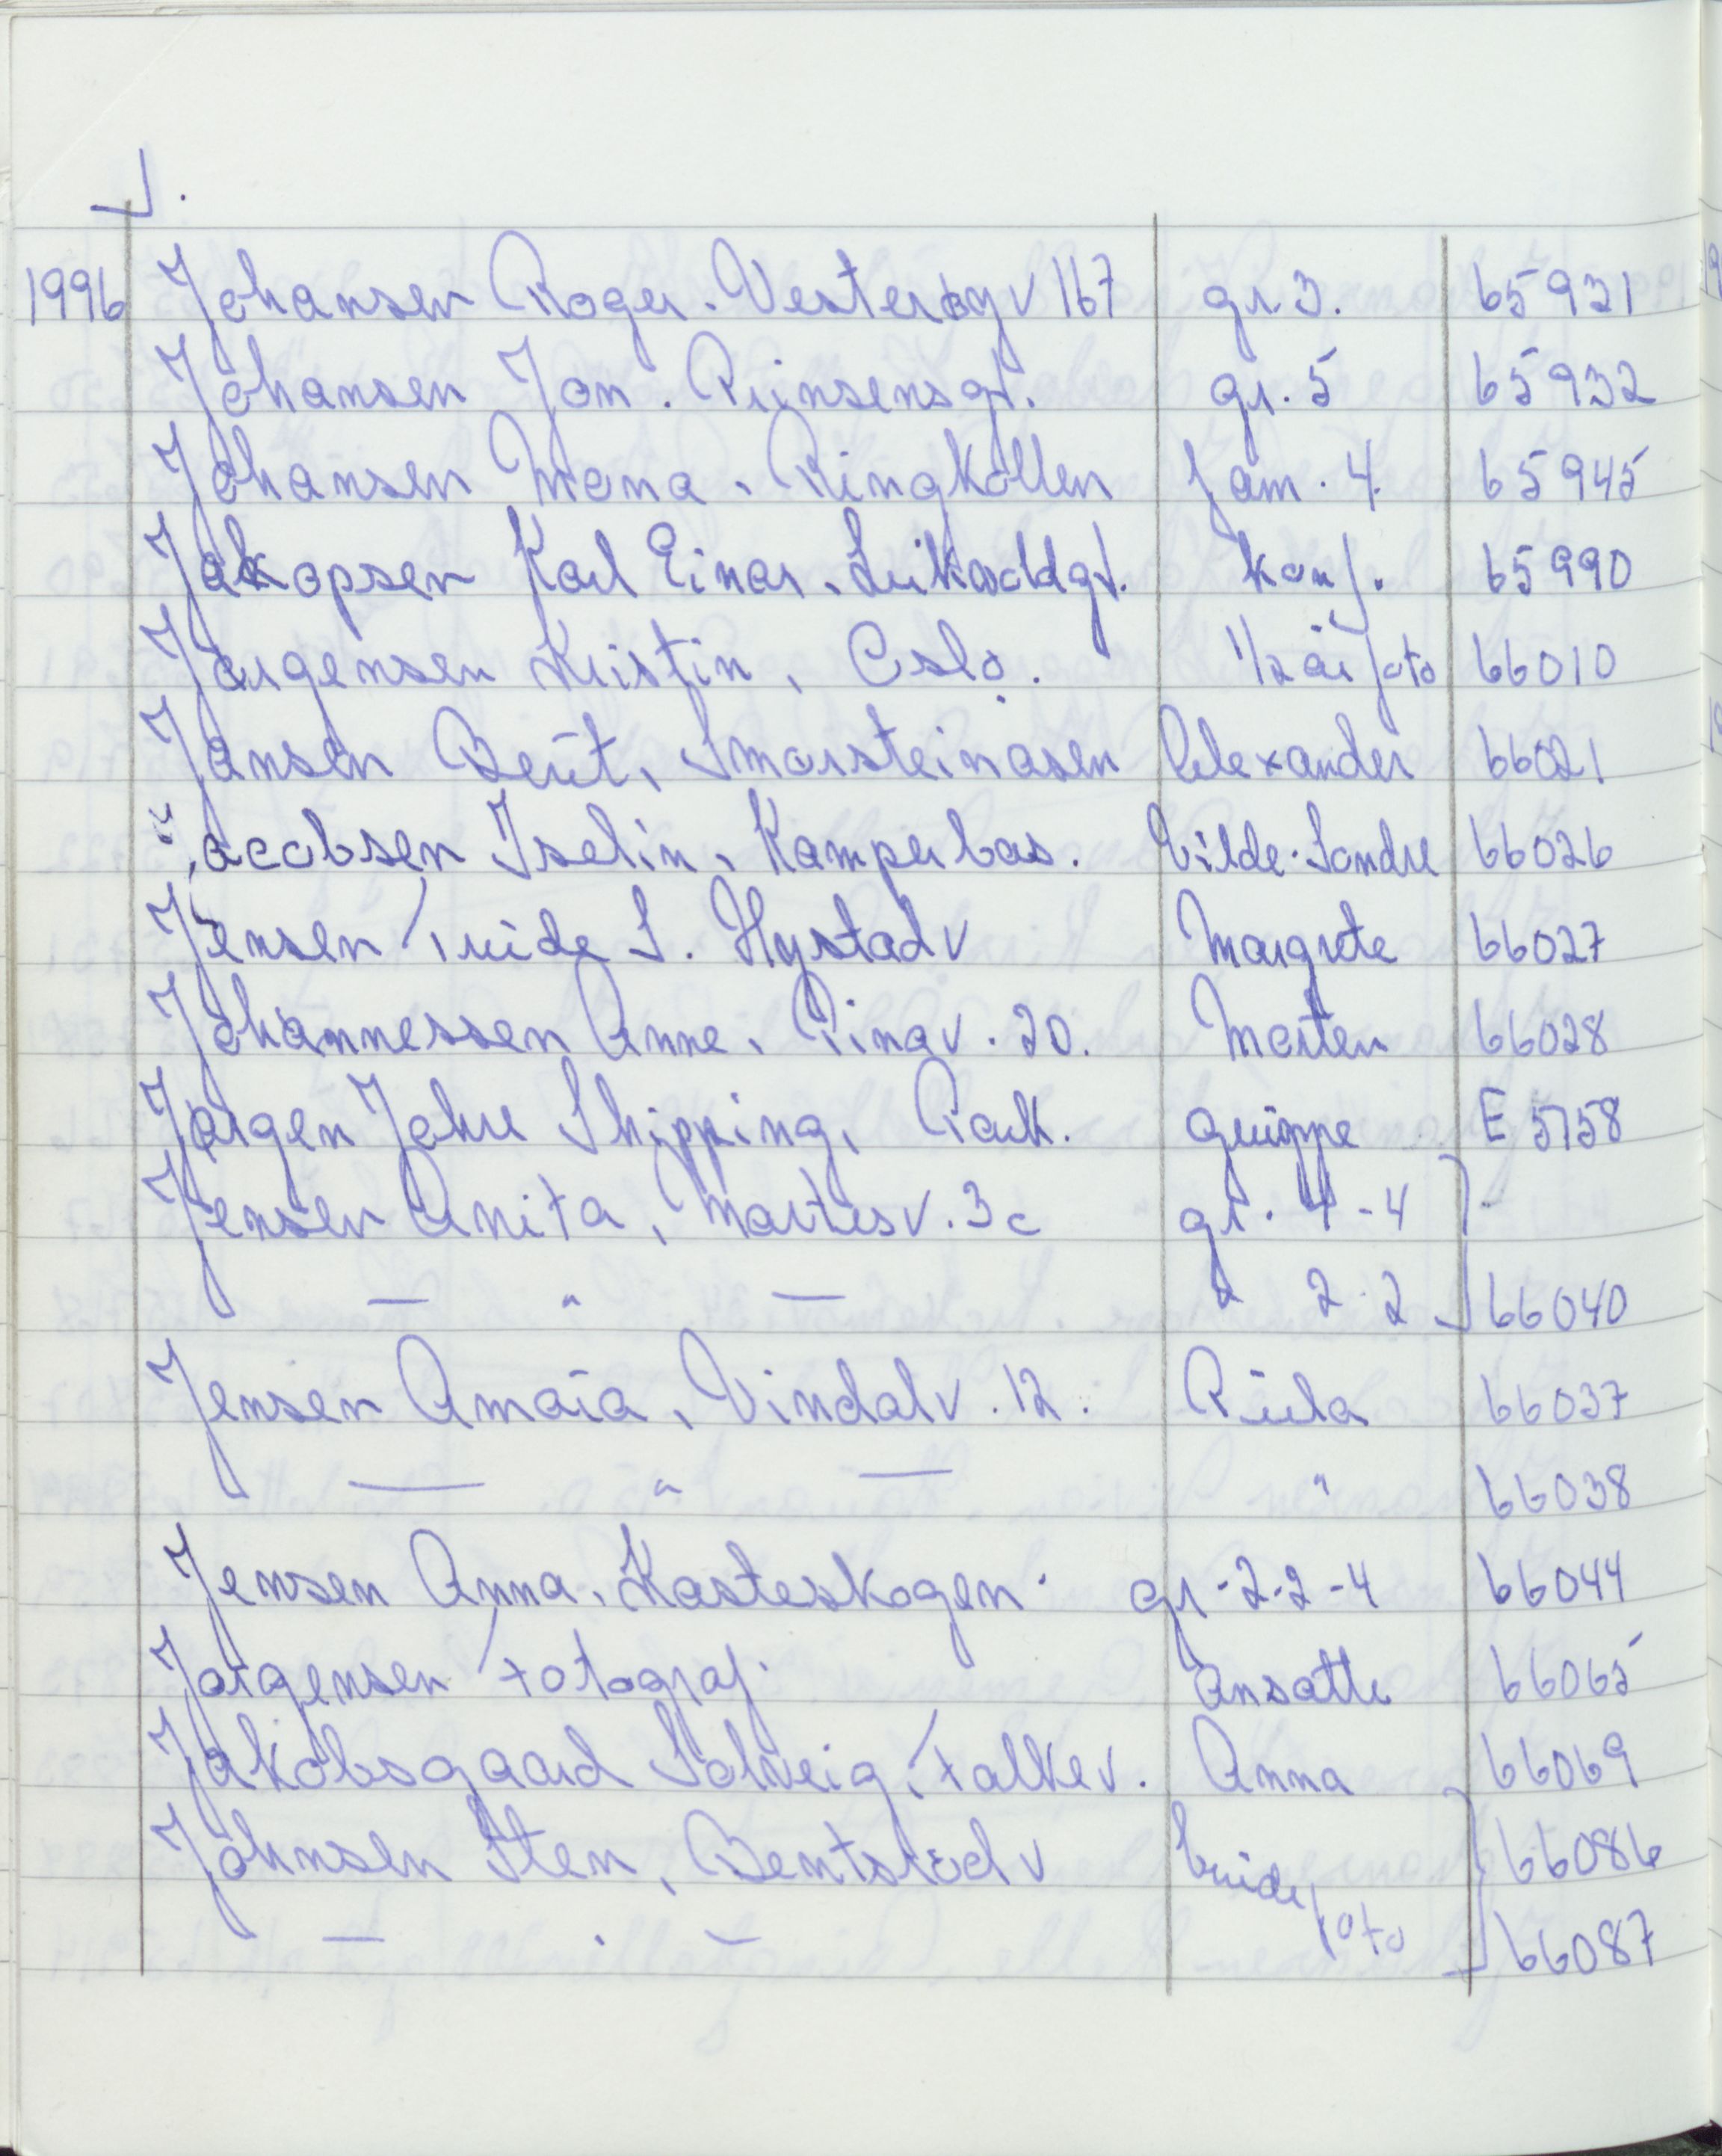 J.
1996 Johansen Roger. Vesterøyv 167 gr. 3. 65931
Johansen Jon. Prinsensgt. gr. 5 65932
Johansen Mona. Ringkollen fam. 4. 65945
Jakopsen Karl Einar. konf. 65990
Jørgensen Kristin, Oslo. 1/2 år foto 66010
Jansen Berit, Smørsteinåsen Alexander 66021
Jacobsen Iselin, Kamperbås. Vilde-Sondre 66026
Jensen Tveide S. Hystadv Margrete 66027
Johannessen Anne, Ringv. 20. Morten 66028
Jørgen Jahre Shipping, Park. gruppe E 5158
Jensen Anita, Mortesv. 3c gr. 4-4
— " — 2 2-2 66040
Jensen Amaia, Vindalv. 12. 66037
— " — " 66038
Jensen Anna, Kasteskogen. gr. 2-2-4 66044
Jørgensen Fotograf. ansatte 66065
Jakobsgaard Solveig, Falkev. Anna 66069
Johnsen Sten, Bentsrødv brude 66086
— . — foto 66087